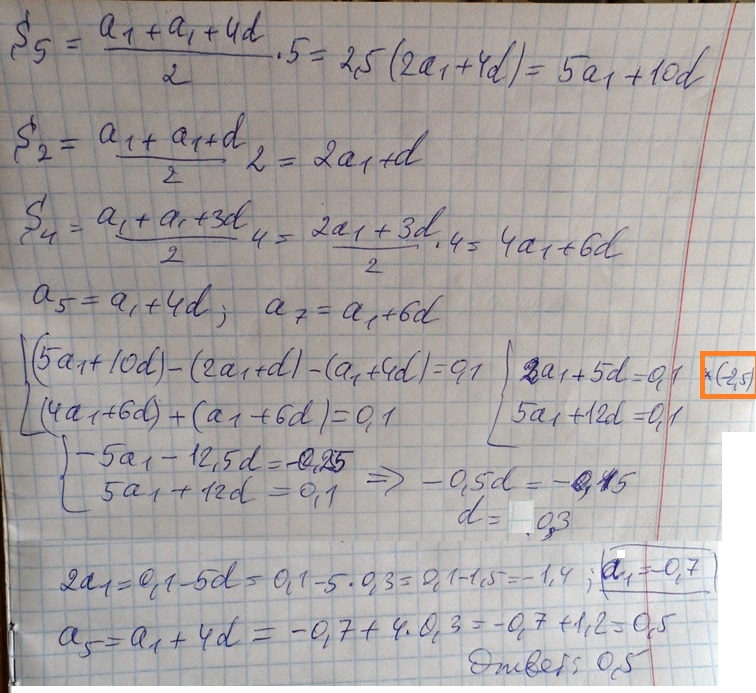 S₅ = (a₁ + a₁ + 4d)/2 · 5 = 2,5 (2a₁ + 4d) = 5a₁ + 10d
S₂ = (a₁ + a₁ + d)/2 2 = 2a₁ + d
S₄ = (a₁ + a₁ + 3d)/2 4 = (2a₁ + 3d)/2 · 4 = 4a₁ + 6d
a₅ = a₁ + 4d; a₇ = a₁ + 6d
(5a₁ + 10d) - (2a₁ + d) - (a₁ + 4d) = 0,1
(4a₁ + 6d) + (a₁ + 6d) = 0,1
2a₁ + 5d = 0,1 × (-2,5)
5a₁ + 12d = 0,1
-5a₁ - 12,5d = -0,25
5a₁ + 12d = 0,1
=> -0,5d = -0,15
d = 0,3
2a₁ = 0,1 - 5d = 0,1 - 5 · 0,3 = 0,1 - 1,5 = -1,4; a₁ = -0,7
a₅ = a₁ + 4d = -0,7 + 4 · 0,3 = -0,7 + 1,2 = 0,5
Ответ: 0,5